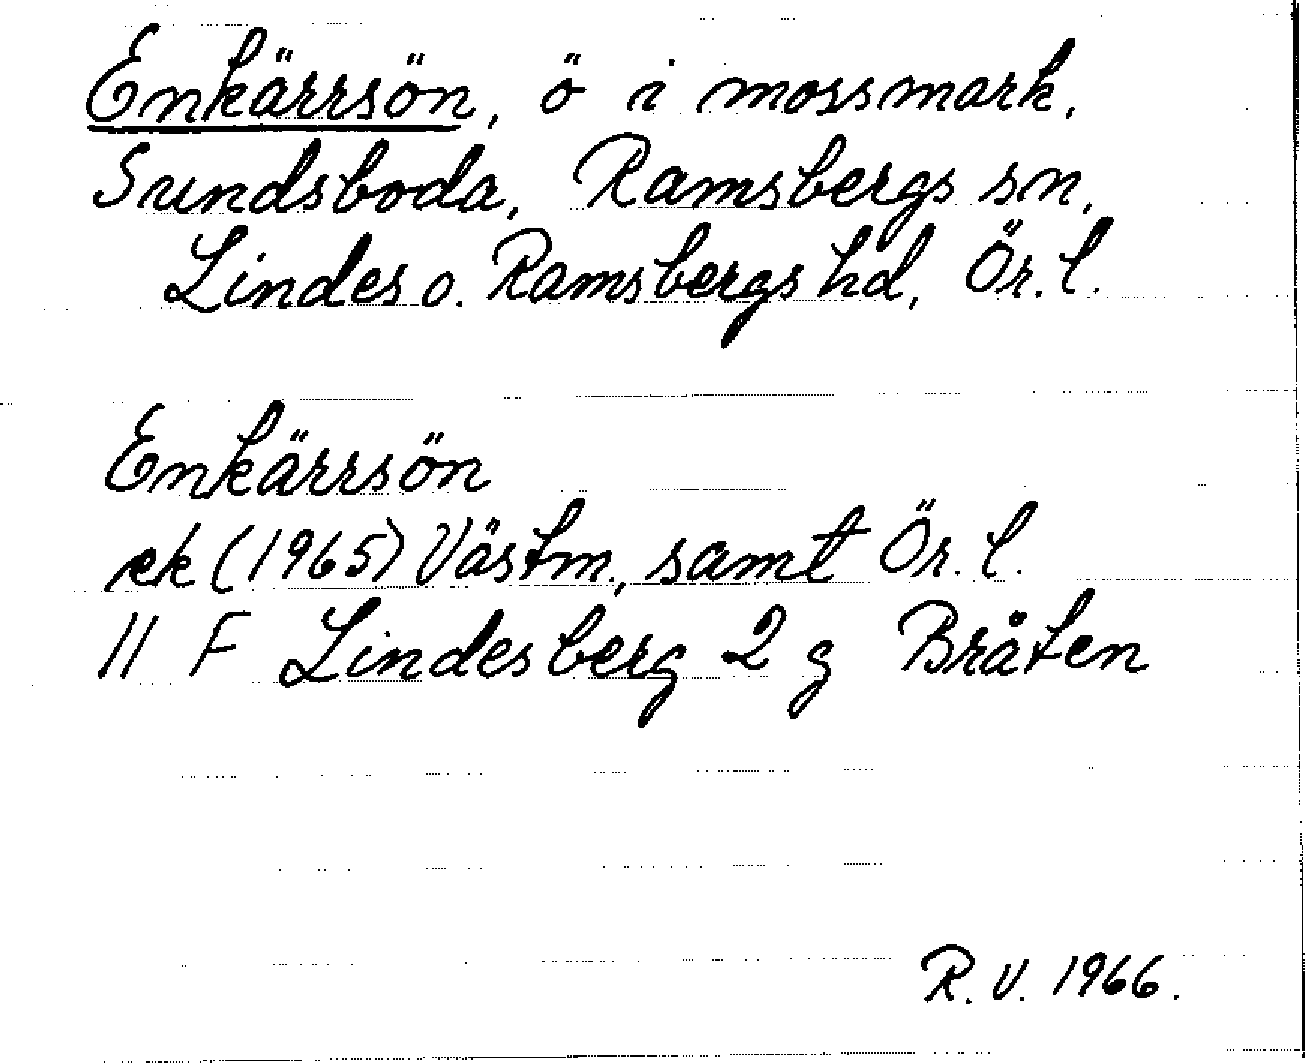 Enkärrsön, ö i mossmark.
Sundsboda, Ramsbergs sn,
Lindes o. Ramsbergs hd, Ör. l.
Enkärrsön
ek (1965) Västm., samt Ör. l.
11 F Lindesberg 2 g Bråten
R. V. 1966.